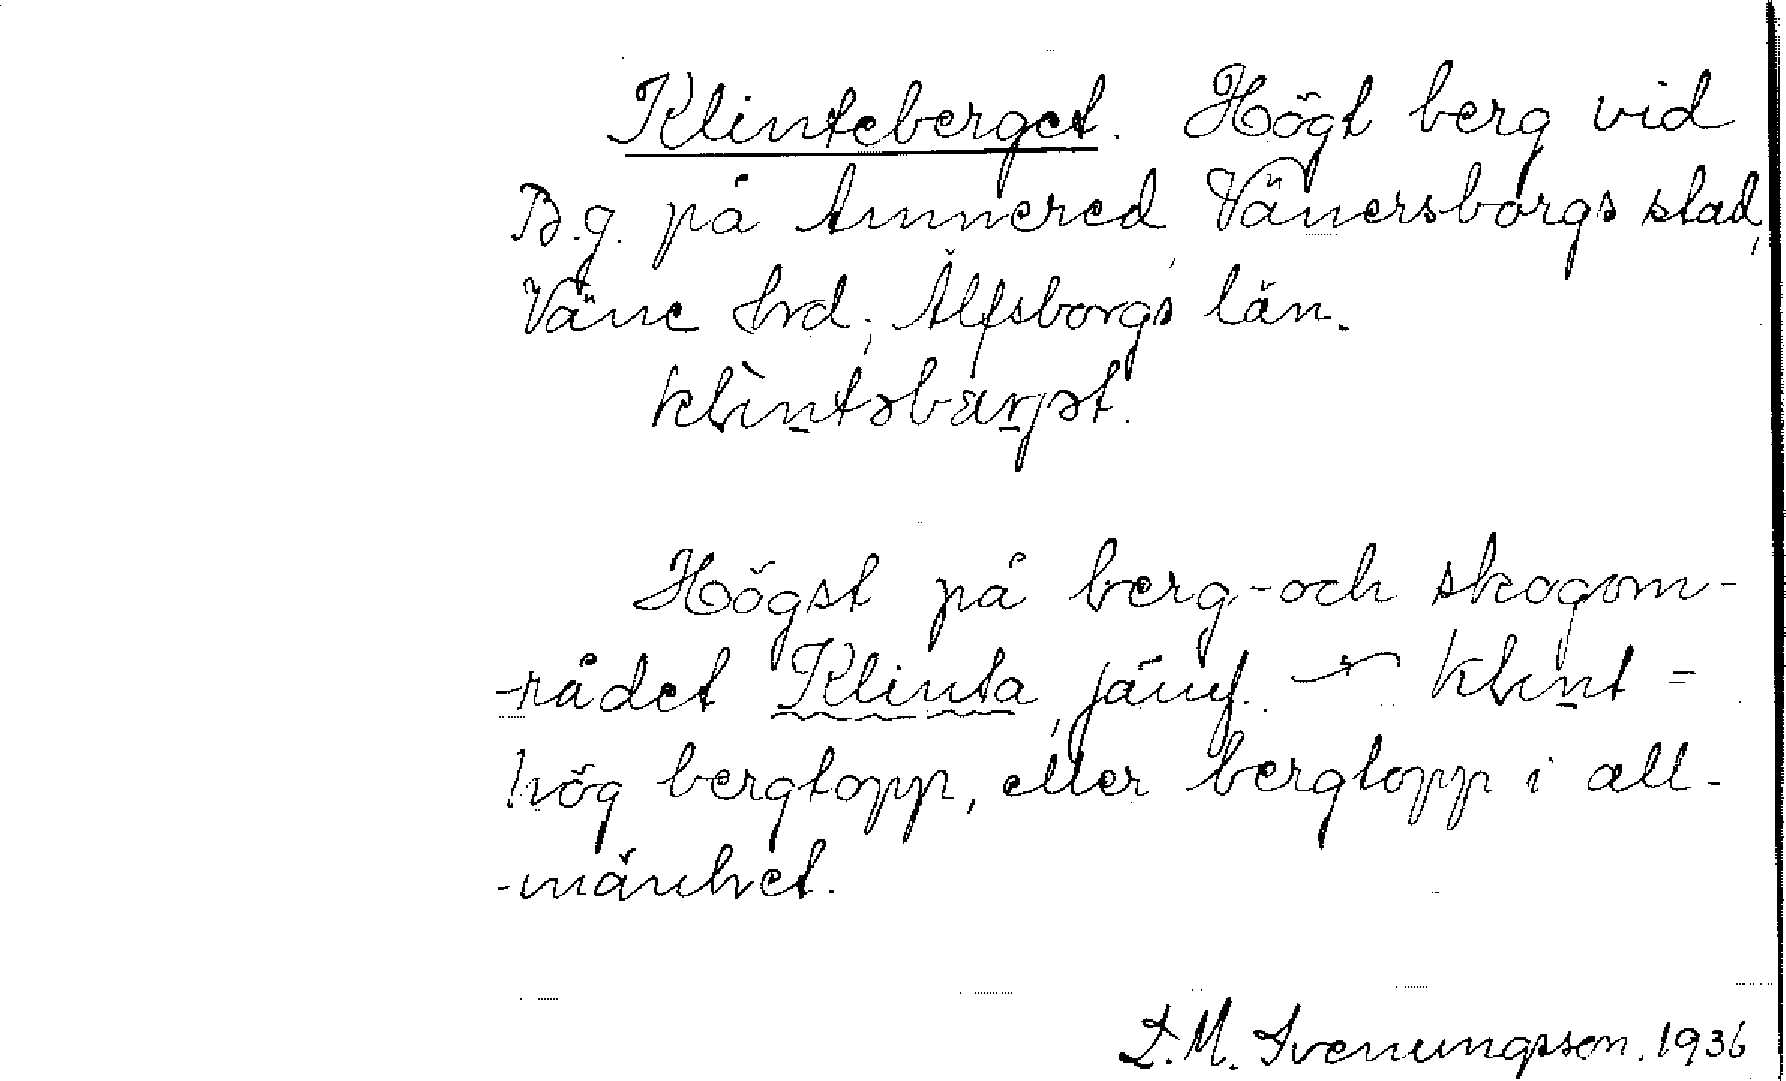 Klinteberget. Högt berg vid
B.g. på Annered, Vänersborgs stad,
Väne hrd, Älfsborgs län.
klìntəbærjət.
Högst på berg- och skogom-
-rådet Klinta, jämf. klint =
hög bergtopp, eller bergtopp i all-
-mänhet.
D. M. Svenungsson. 1936